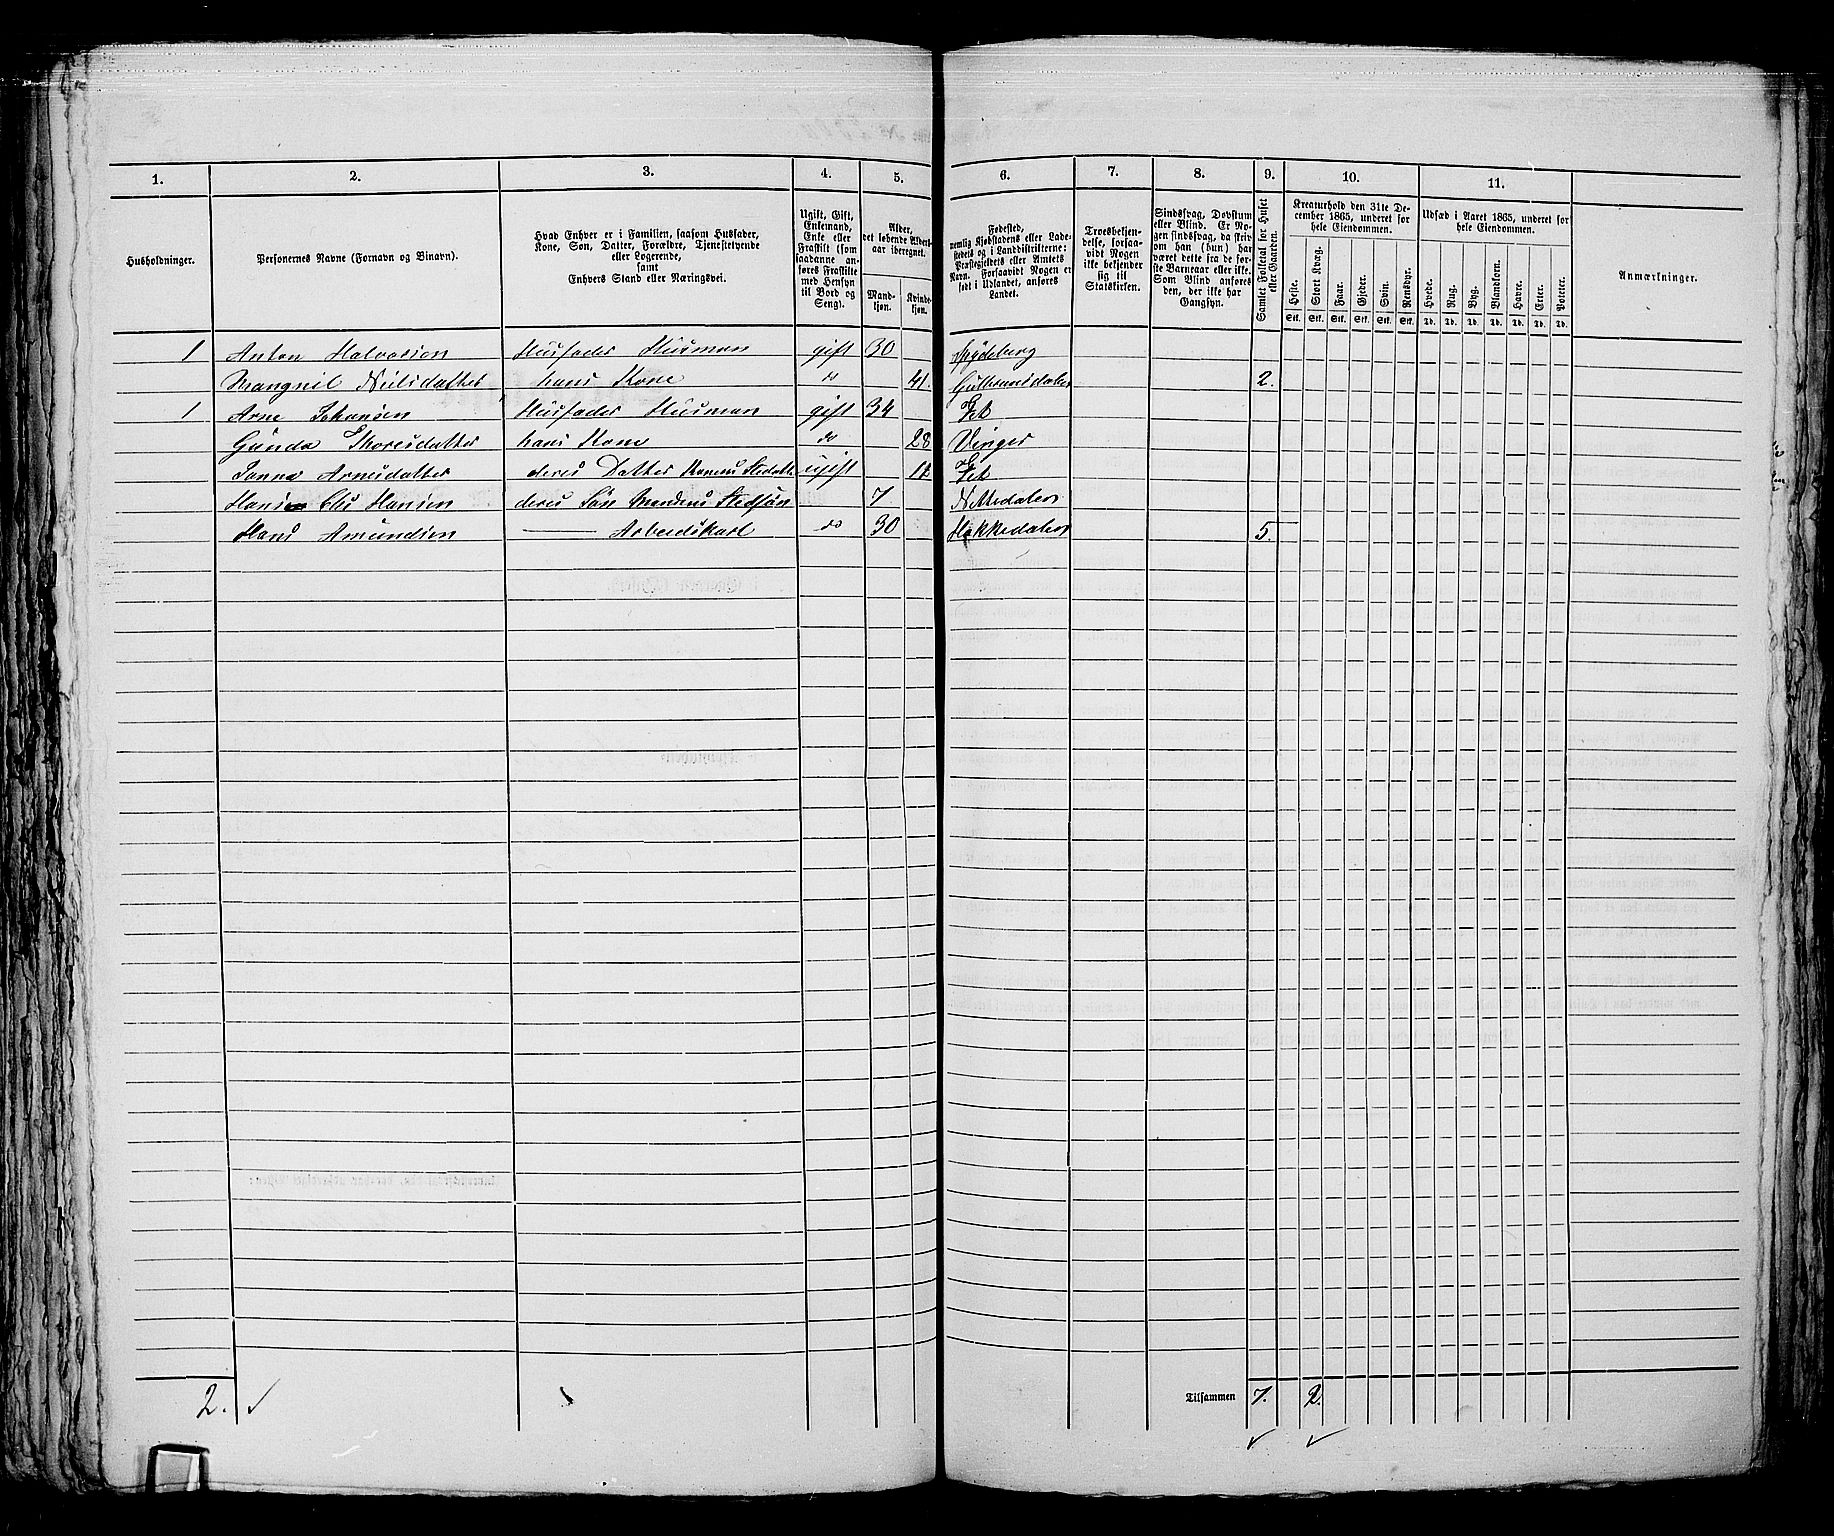 1. 2. 3. 4. 5. 6. 7. 8. 9. 10. 11.
Husholdninger.
Personernes Navne (Fornavn og Binavn).
Hvad Enhver er i Familien, saasom Husfader,
Kone, Søn, Datter, Forældre, Tjenestetyende
eller Logerende,
samt
Enhvers Stand eller Næringsvei.
Ugift, Gift,
Enkemand,
Enke eller
Fraskilt (som
saadanne an-
føres Fraskilte
med Hensyn
til Bord og
Seng).
Alder,
det løbende Alders-
aar iberegnet.
Mand-
kjøn.
Kvinde-
kjøn.
Fødested,
nemlig Kjøbstadens eller Lade-
stedets og i Landdistrikterne:
Præstegjeldets eller Amtets
Navn. Forsaavidt Nogen er
født i Udlandet, anføres
Landet.
Troesbekjen-
delse, forsaa-
vidt Nogen
ikke bekjender
sig til
Statskirken.
Sindssvag, Døvstum
eller Blind. Er No-
gen sindssvag, da skriv
om han (hun) har
været dette fra de før-
ste Barneaar eller ikke.
Som Blind anføres
den, der ikke har
Gangsyn.
Samlet Folketal for Huset
eller Gaarden.
Kreaturhold den 31te De-
cember 1865, underet for
hele Eiendommen.
Heste. Stort Kvæg. Faar. Gjeder. Svin. Rensdyr.
Stk. Stk. Stk. Stk. Stk. Stk.
Udsæd i Aaret 1865, underet for
hele Eiendommen.
Hvede. Rug. Byg. Blandkorn. Havre. Erter. Poteter.
Td. Td. Td. Td. Td. Td. Td.
Anmærkninger.
1 Anton Halvorsen Husfader Husman gift 30 Spydeberg
Mangnil Nielsdatter hans Kone do 41. 2.
1 Arne Johansen Husfader Husman gift 34 Fet
Gunda Thoresdatter hans Kone do 28 Vinger
Janna Arnesdatter deres Datter Konens Stedatt ugift Fet
Hansen deres Søn Mandens Stedsøn 7 Nittedalen
Hans Amundsen Arbeidskarl do 30 Hakkedalen 5.
2. Tilsammen 7. 2.